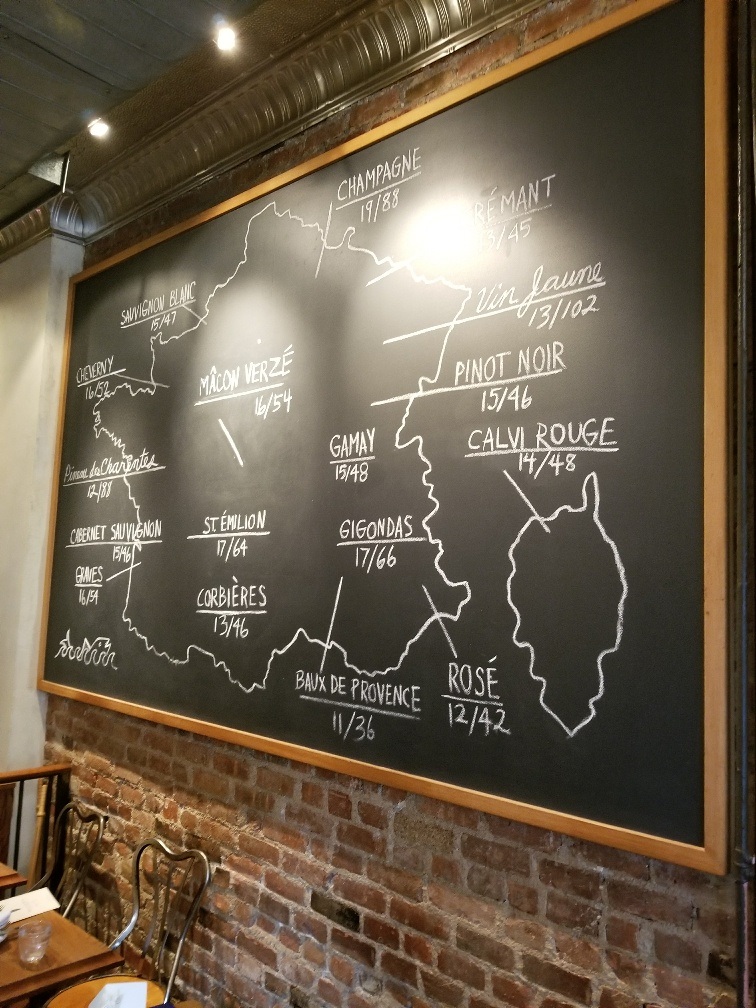 CHAMPAGNE
19/88
RÉMANT
3/45
SAUVIGNON BLANC
15/47
Vin Jaune
13/102
CHEVERNY
16/52
MÂCON VERZÉ
16/54
PINOT NOIR
15/46
GAMAY
15/48
CALVI ROUGE
14/48
Pineau des Charentes
12/88
CABERNET SAUVIGNON
15/46
ST. ÉMILION
17/64
GIGONDAS
17/66
GRAVES
16/54
CORBIÈRES
13/46
BAUX DE PROVENCE
11/36
ROSÉ
12/42